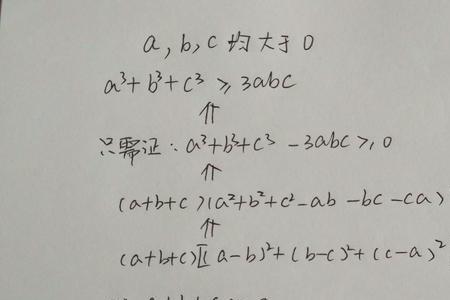 a,b,c均大于0
a³+b³+c³≥3abc
⇑
只需证:a³+b³+c³-3abc≥0
⇑
(a+b+c)(a²+b²+c²-ab-bc-ca)
⇑
(a+b+c)[(a-b)²+(b-c)²+(c-a)²